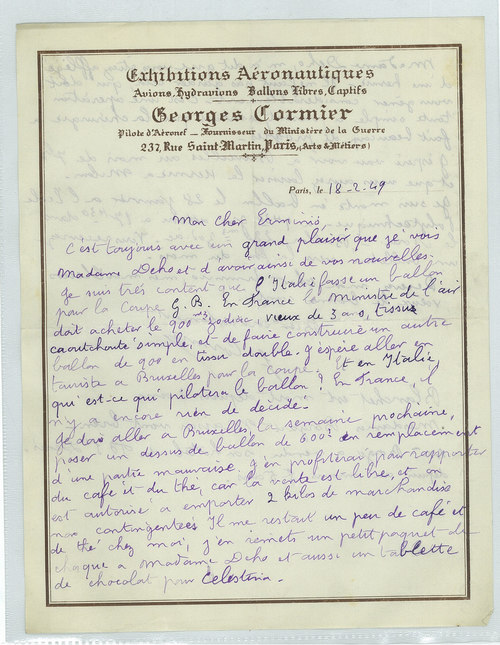 Exhibitions Aéronautiques
Avions, Hydravions Ballons Libres, Captifs
Georges Cormier
Pilote d'Aéronef — Fournisseur du Ministère de la Guerre
237, Rue Saint-Martin, Paris, (Arts & Métiers)
Paris, le 18-2-49
Mon cher Erminio,
C'est toujours avec un grand plaisir que je vois
Madame Deho et d'avoir ainsi de vos nouvelles.
Je suis très content que l'Italie fasse un ballon
pour la Coupe G.B. En France le Ministre de l'air
doit acheter le 900 m3 Zodiac vieux de 3 ans, tissus
caoutchouté simple, et de faire construire un autre
ballon de 900 en tissu double. J'espère aller en
touriste a Bruxelles pour la coupe. Et en Italie,
qui est-ce qui pilotera le ballon? En France, il
n'y encore rien de décidé.
Je dois aller a Bruxelles, la semaine prochaine,
poser un dessus de ballon de 600 en remplacement
d'une partie mauvaise, j'en profiterai pour rapporter
du café et du thé, car la vente est libre, et on
est autorisé a emporter 2 kilos de marchandise
non contingentées. Il me restait un peu de café et
de thé chez moi, j'en remets un petit paquet de
chaque a Madame Deho et aussi un tablette
de chocolat pour Celestina.